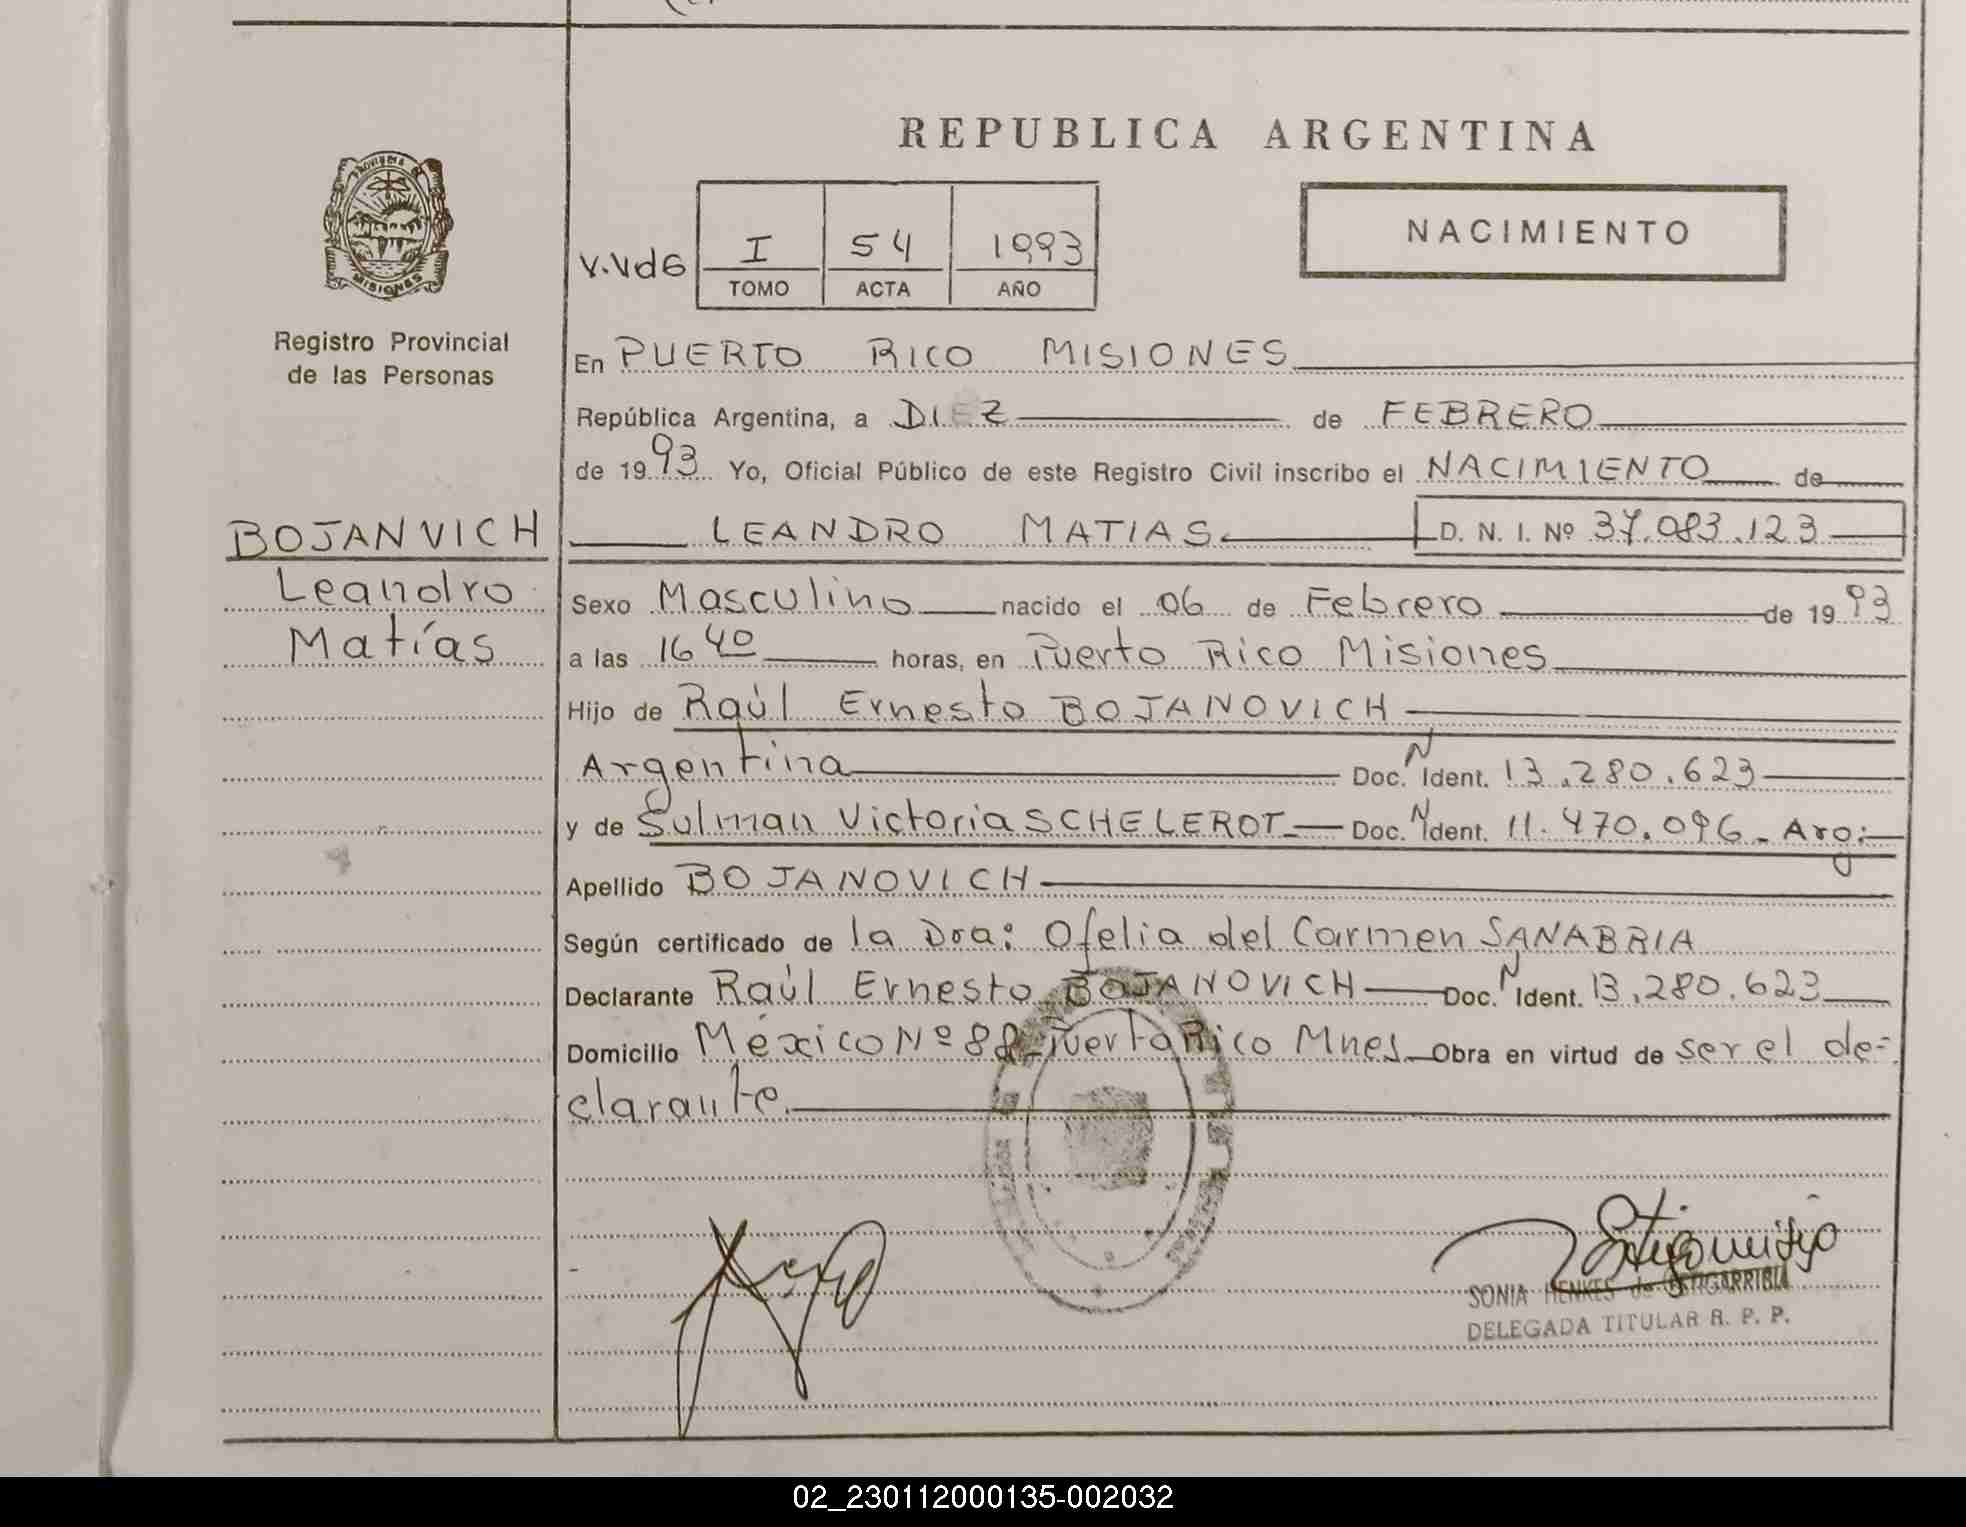 REPUBLICA ARGENTINA
PROVINCIA
MISIONES
NACIMIENTO
V.Vd6 I 54 1993
TOMO ACTA AÑO
Registro Provincial
de las Personas
En PUERTO RICO MISIONES
República Argentina, a DIEZ de FEBRERO
de 1993 Yo, Oficial Público de este Registro Civil inscribo el NACIMIENTO de
BOJANVICH
Leandro
Matías
LEANDRO MATIAS D. N. I. Nº 37.083.123
Sexo Masculino nacido el 06 de Febrero de 1993
a las 16 40 horas, en Puerto Rico Misiones
Hijo de Raúl Ernesto BOJANOVICH
Argentina Doc. N Ident. 13.280.623
y de Sulman Victoria SCHELEROT Doc. N Ident. 11.470.096 - Arg.
Apellido BOJANOVICH
Según certificado de la Dra: Ofelia del Carmen SANABRIA
Declarante Raúl Ernesto BOJANOVICH Doc. N Ident. 13.280.623
Domicilio México Nº 88 - Puerto Rico Mnes Obra en virtud de ser el de-
clarante.
SONIA HENKES de ESTIGARRIBIA
DELEGADA TITULAR R. P. P.
02_230112000135-002032